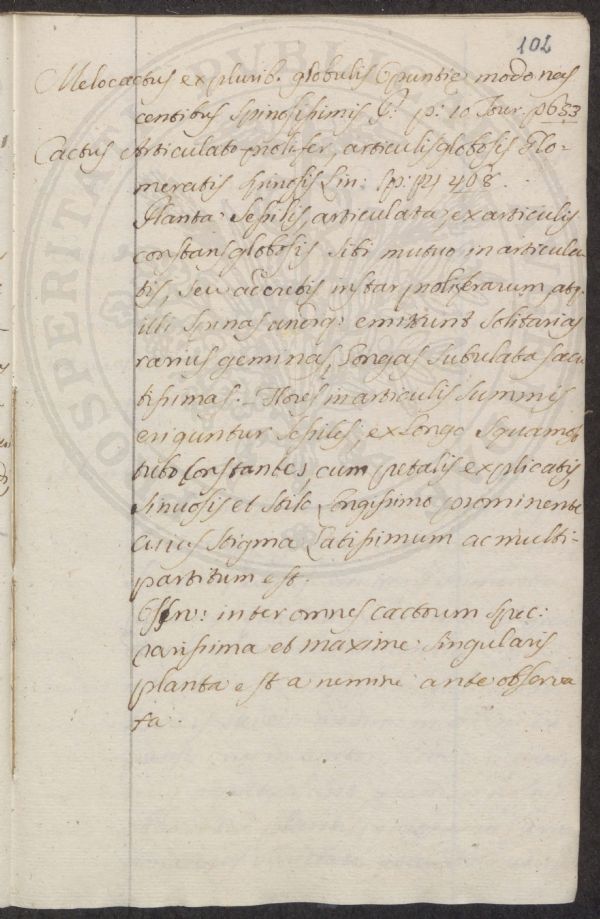 102
Melocactus ex plurib. globulis Opuntię modo nas
centibus spinosissimis P: p: 10 Tour. p 653
Cactus Articulato-prolifer, articulis globosis Glo-
meratis spinosis Lin: Sp: pl 408.
Planta: Sessilis articulata, ex articulis
constans globosis sibi mutuo inarticula
tis, seu accretis instar proliferarum atq.
illi spinas undiq: emittunt solitarias
rarius geminas, Longas subulatas acu
tissimas. Flores in articulis summis
eriguntur sessiles, ex Longo squamos
tubo constantes, cum petalis explicatis,
sinuosis et stilo Longissimo prominente
cuius stigma Latissimum ac multi-
partitum est.
Observ: inter omnes cactorum spec:
rarissima et maxime singularis
planta est a nemine ante observa
ta.
PROSPERITATE PUBLICA